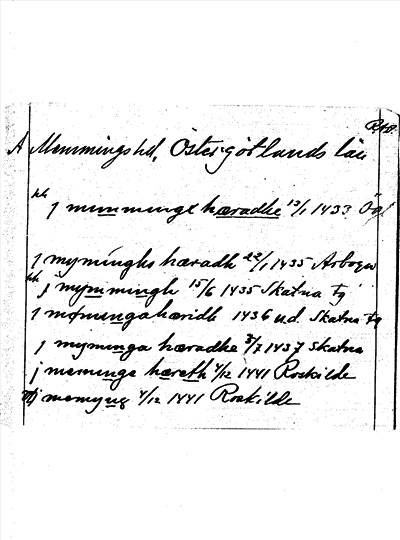 RAP.
A Memmings hd, Östergötlands län
j mumminge hæradhe 13/1 1433 Ögl
j myminghs hæradh 22/1 1435 Arboga
j mymmingh 15/6 1435 Skatna fg
j momungahæridh 1436 u.d. Skatna fg
j myminga hæradhe 8/7 1437 Skatna
j meminge hæreth 4/12 1441 Roskilde
j memyng 4/12 1441 Roskilde